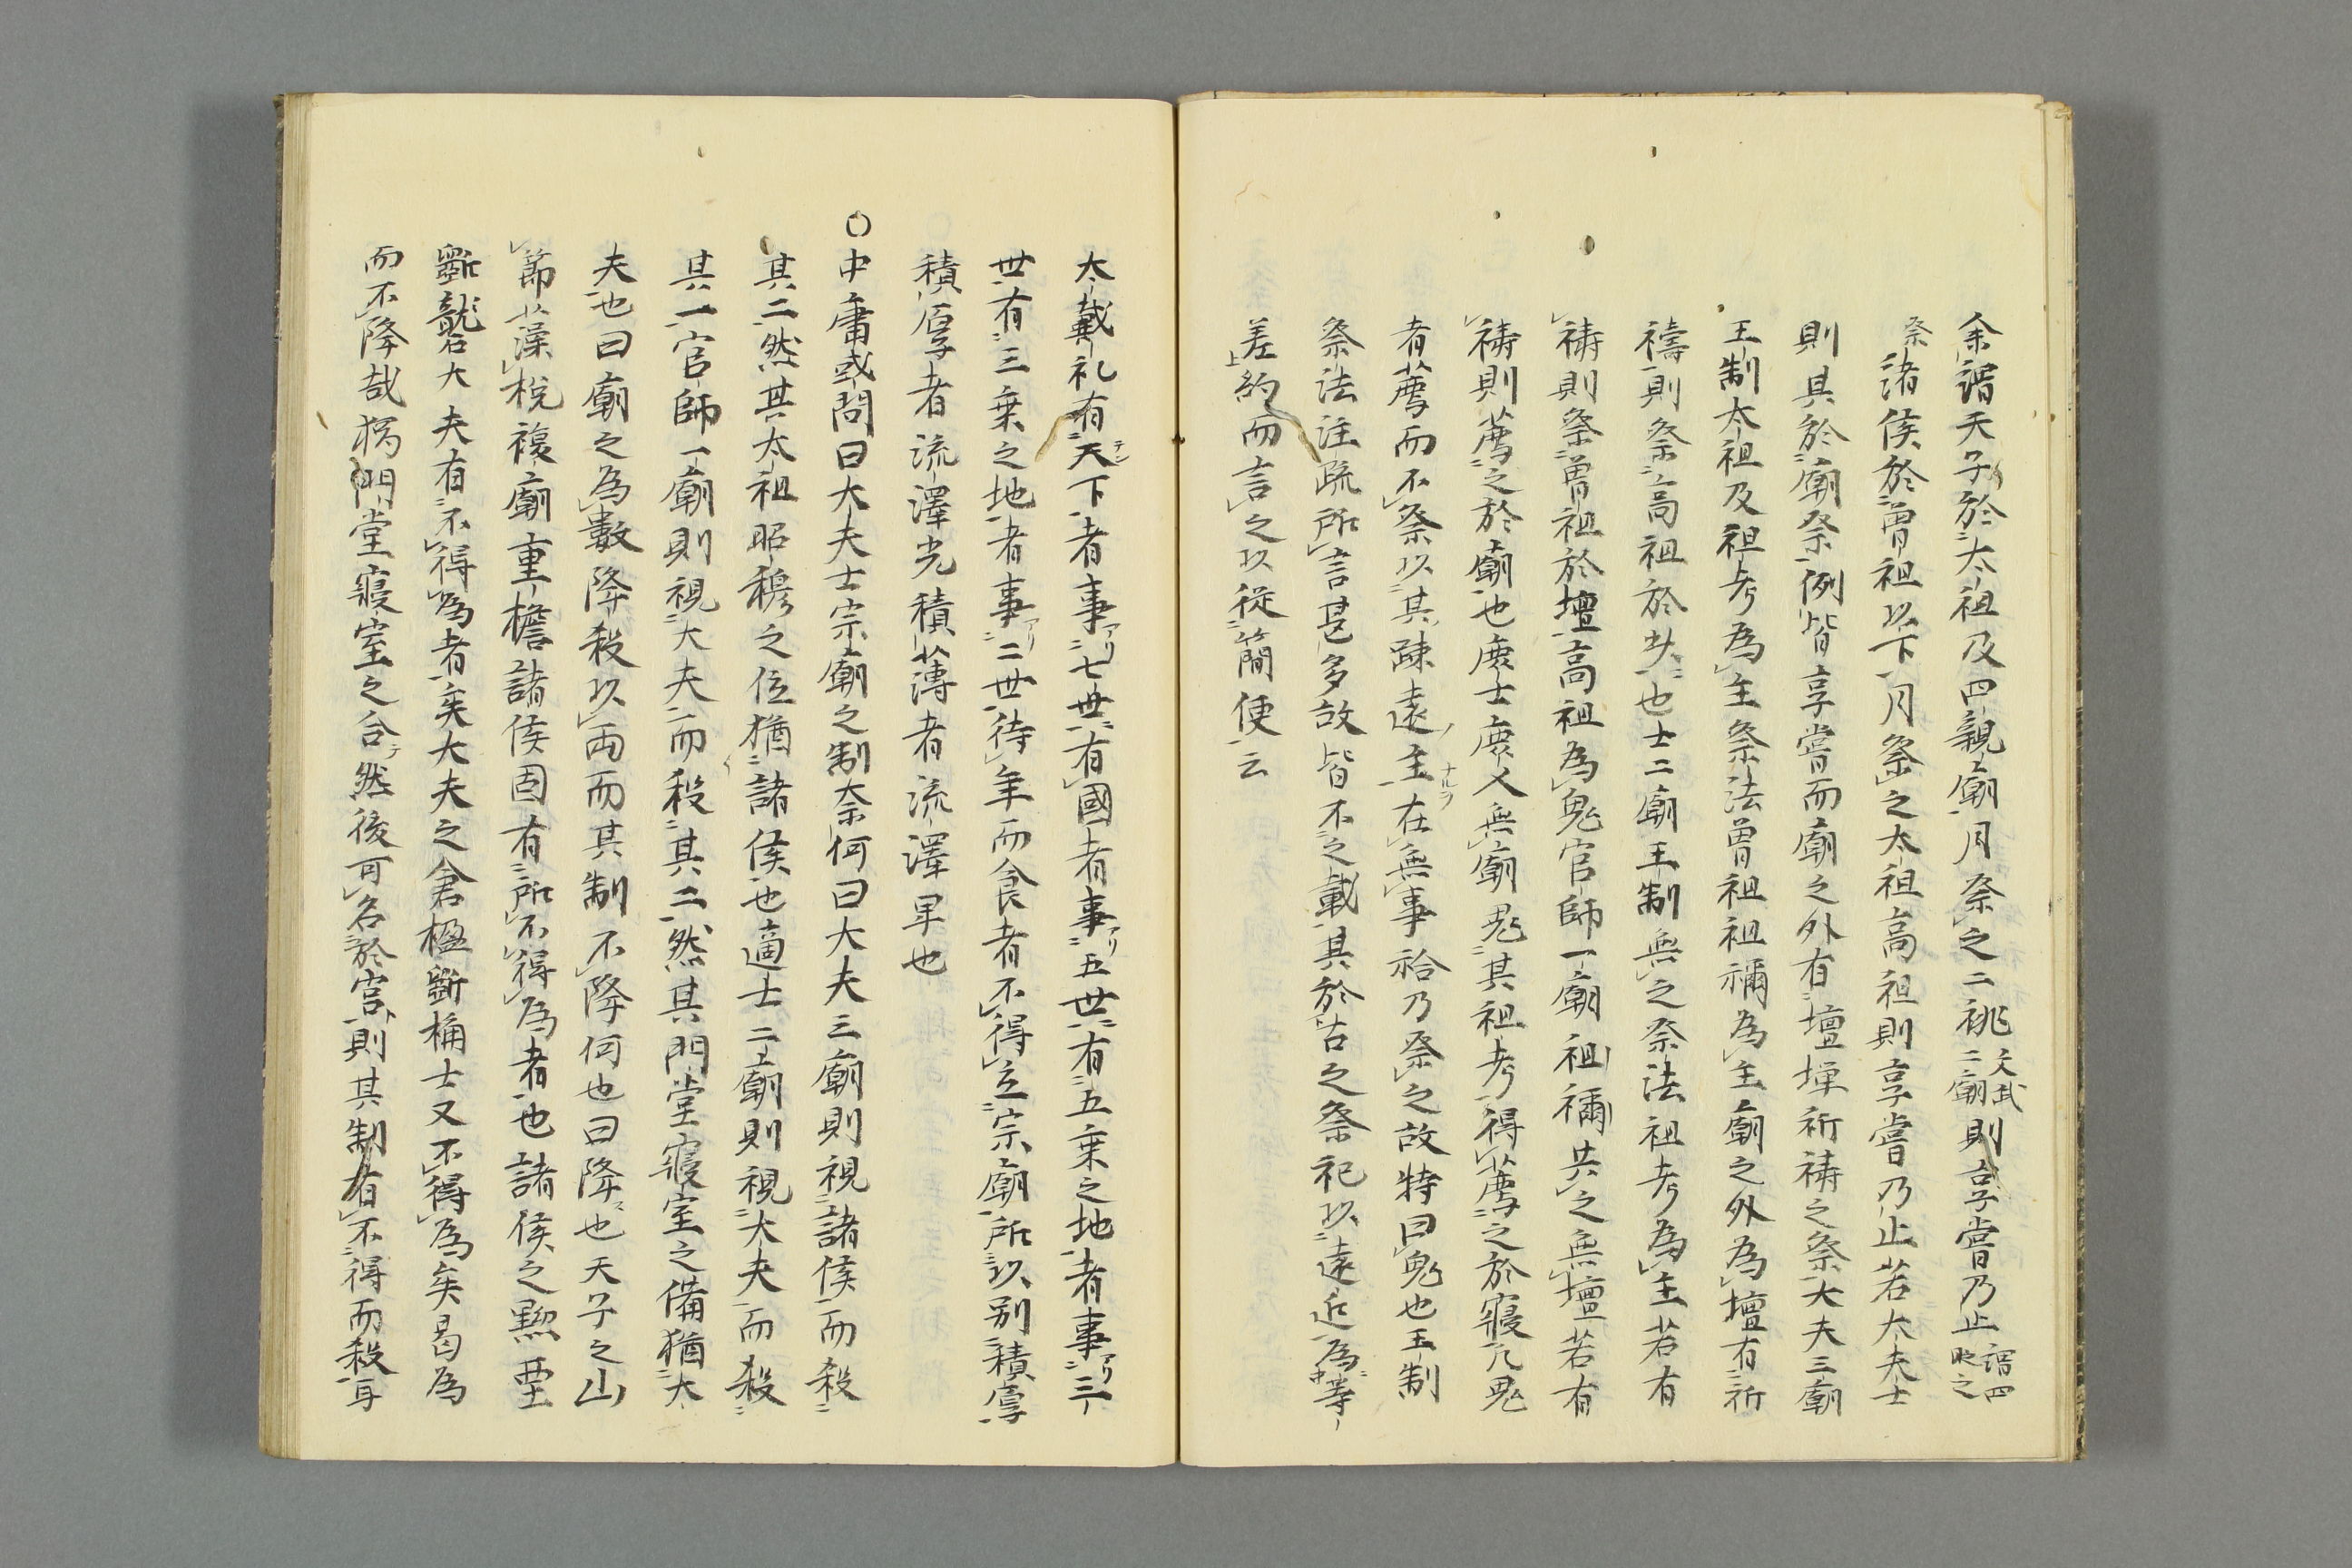 余謂天子於太祖及四親廟月祭之二祧文武二廟則享嘗乃止謂四時之
祭諸侯於曽祖以下月祭之太祖高祖則享嘗乃止若大夫士
則其於廟祭一例皆享嘗而廟之外有壇墠祈祷之祭大夫三廟
王制太祖及祖考為主祭法曽祖祖禰為主廟之外為壇有祈
禱則祭高祖於此也士二廟王制無之祭法祖考為主若有
祷則祭曽祖於壇高祖為鬼官師一廟祖禰共之無壇若有
祷則薦之於廟也庶士庶人無廟鬼其祖考得薦之於寢凡鬼
者薦而不祭以其疎遠主在無事祫乃祭之故特曰鬼也王制
祭法注疏所言甚多故皆不之載其於古之祭祀以遠近為等
差約而言之以從簡便云
大戴礼有天テン下者事アリ七世有國者事アリ五世有五乗之地者事アリ三
世有三乗之地者事アリ二世待年而食者不得立宗廟所以别積厚
積厚者流澤光積薄者流澤卑也
〇中庸或問曰大夫士宗廟之制奈何曰大夫三廟則視諸侯而殺
其二然其太祖昭穆之位猶諸侯也適士二廟則視大夫而殺
其一官師一廟則視大夫而殺其二然其門堂寢室之備猶大
夫也曰廟之為數降殺以両而其制不降何也曰降也天子之山
節藻梲複廟重檐諸侯固有所不得為者也諸侯之黝堊
斲礱大夫有不得為者矣大夫之倉楹斲桷士又不得為矣曷為
而不降哉獨門堂寢室之合テ然後可名於宮則其制有不得而殺耳